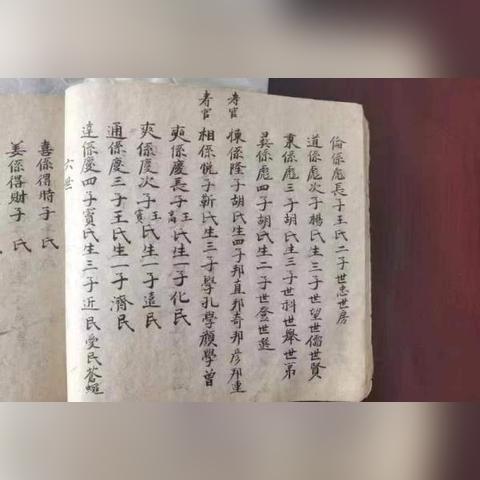 倫係彪長子王氏二子世忠世房
道係彪次子楊氏生三子世望世儒世賢
東係彪三子胡氏生三子世科世舉世第
巽係彪四子胡氏生二子世登世選
寿官 悚係隆子胡氏生四子邦直邦奇邦彦邦重
寿官 相係悦子靳氏生三子學孔學顔學曾
奭係慶長子王氏生一子化民
爽係慶次子王氏生一子遠民
通係慶三子王氏生一子濟民
達係慶四子賓氏生三子近民愛民蒼
六世
喜係得時子 氏
姜係得財子 氏